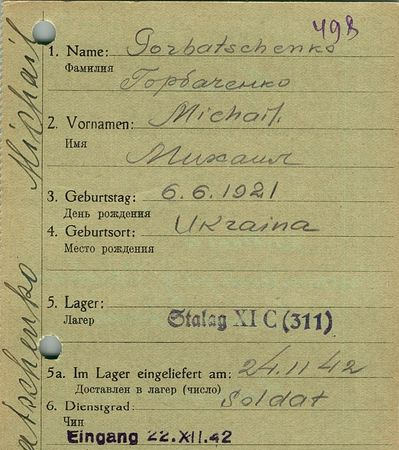 498
1. Name: Gorbatschenko
Фамилия
Горбаченко
2. Vornamen: Michail
Имя
Михаил
3. Geburtstag: 6.6.1921
День рождения
4. Geburtsort: Ukraina
Место рождения
5. Lager: Stalag XI C (311)
Лагерь
5a. Im Lager eingeliefert am: 24.11 42
Доставлен в лагерь (число)
6. Dienstgrad: Soldat
Чин
Eingang 22.XII.42
atschenko Michail